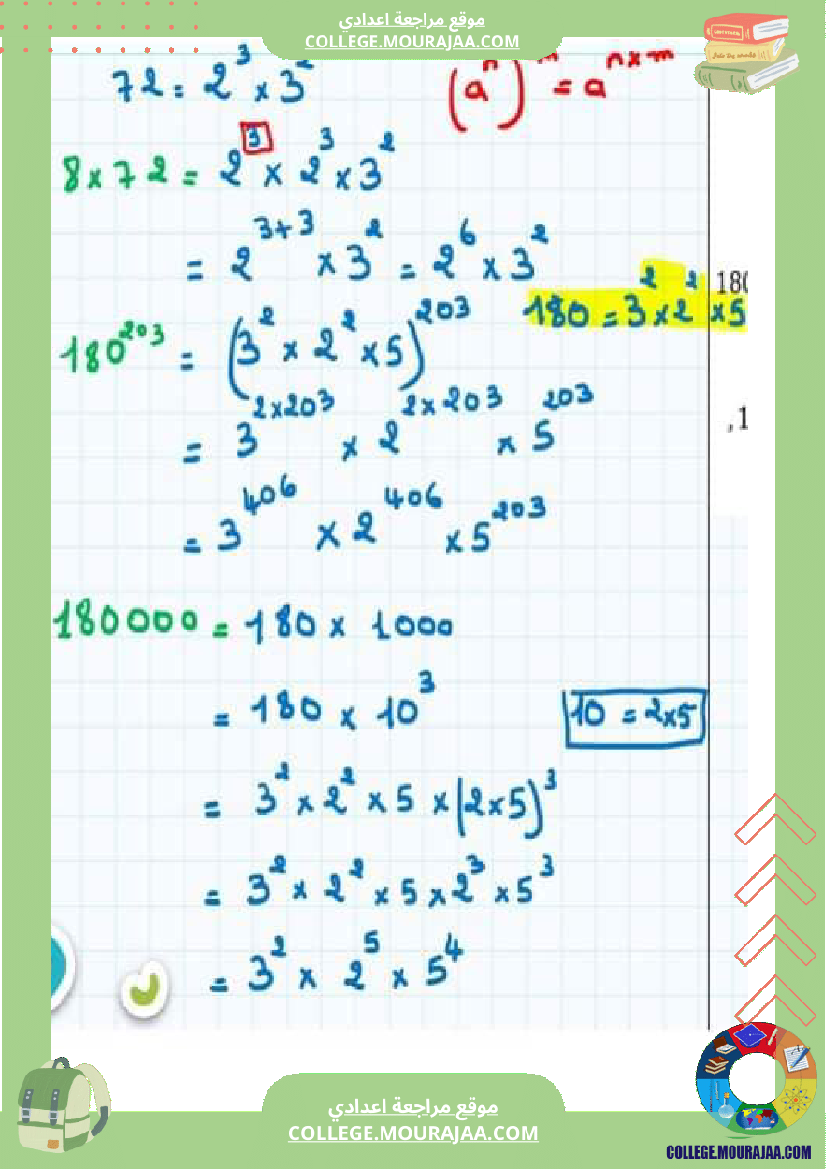 موقع مراجعة اعدادي
COLLEGE.MOURAJAA.COM
72 = 2³ × 3²
(aⁿ)ᵐ = aⁿˣᵐ
8 × 72 = 2³ × 2³ × 3²
= 2³⁺³ × 3² = 2⁶ × 3²
180
180 = 3² × 2² × 5
180²⁰³ = (3² × 2² × 5)²⁰³
= 3²ˣ²⁰³ × 2²ˣ²⁰³ × 5²⁰³
,1
= 3⁴⁰⁶ × 2⁴⁰⁶ × 5²⁰³
180000 = 180 × 1000
= 180 × 10³
10 = 2×5
= 3² × 2² × 5 × (2×5)³
= 3² × 2² × 5 × 2³ × 5³
= 3² × 2⁵ × 5⁴
موقع مراجعة اعدادي
COLLEGE.MOURAJAA.COM
COLLEGE.MOURAJAA.COM